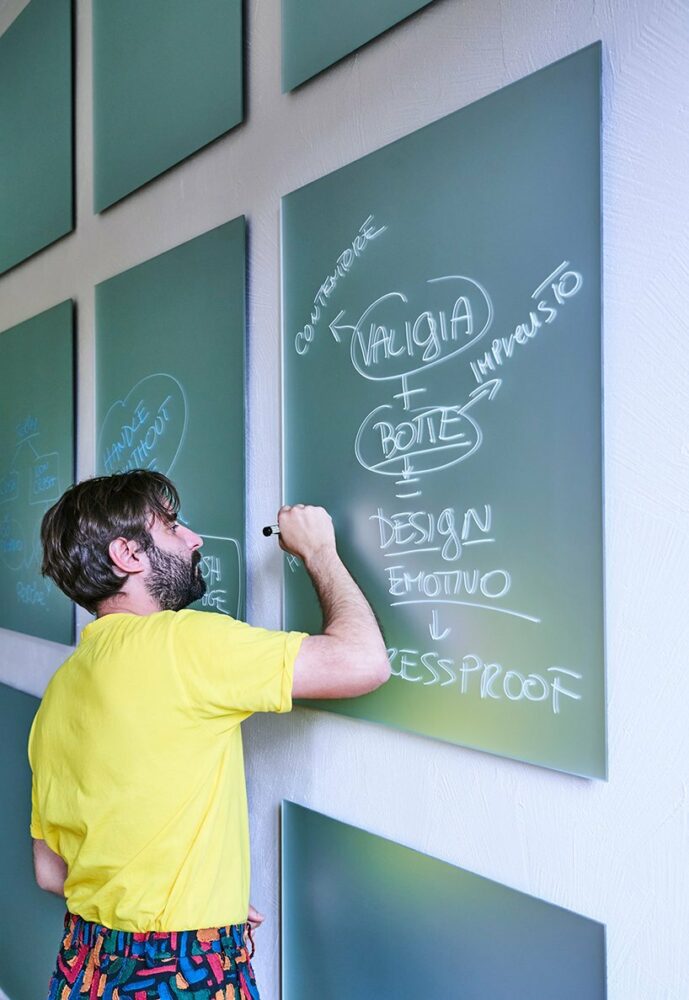 CONTENITORE
VALIGIA
+
IMPREVISTO
BOTTE
=
DESIGN
EMOTIVO
RESSPROOF
HANDLE
WITHOUT